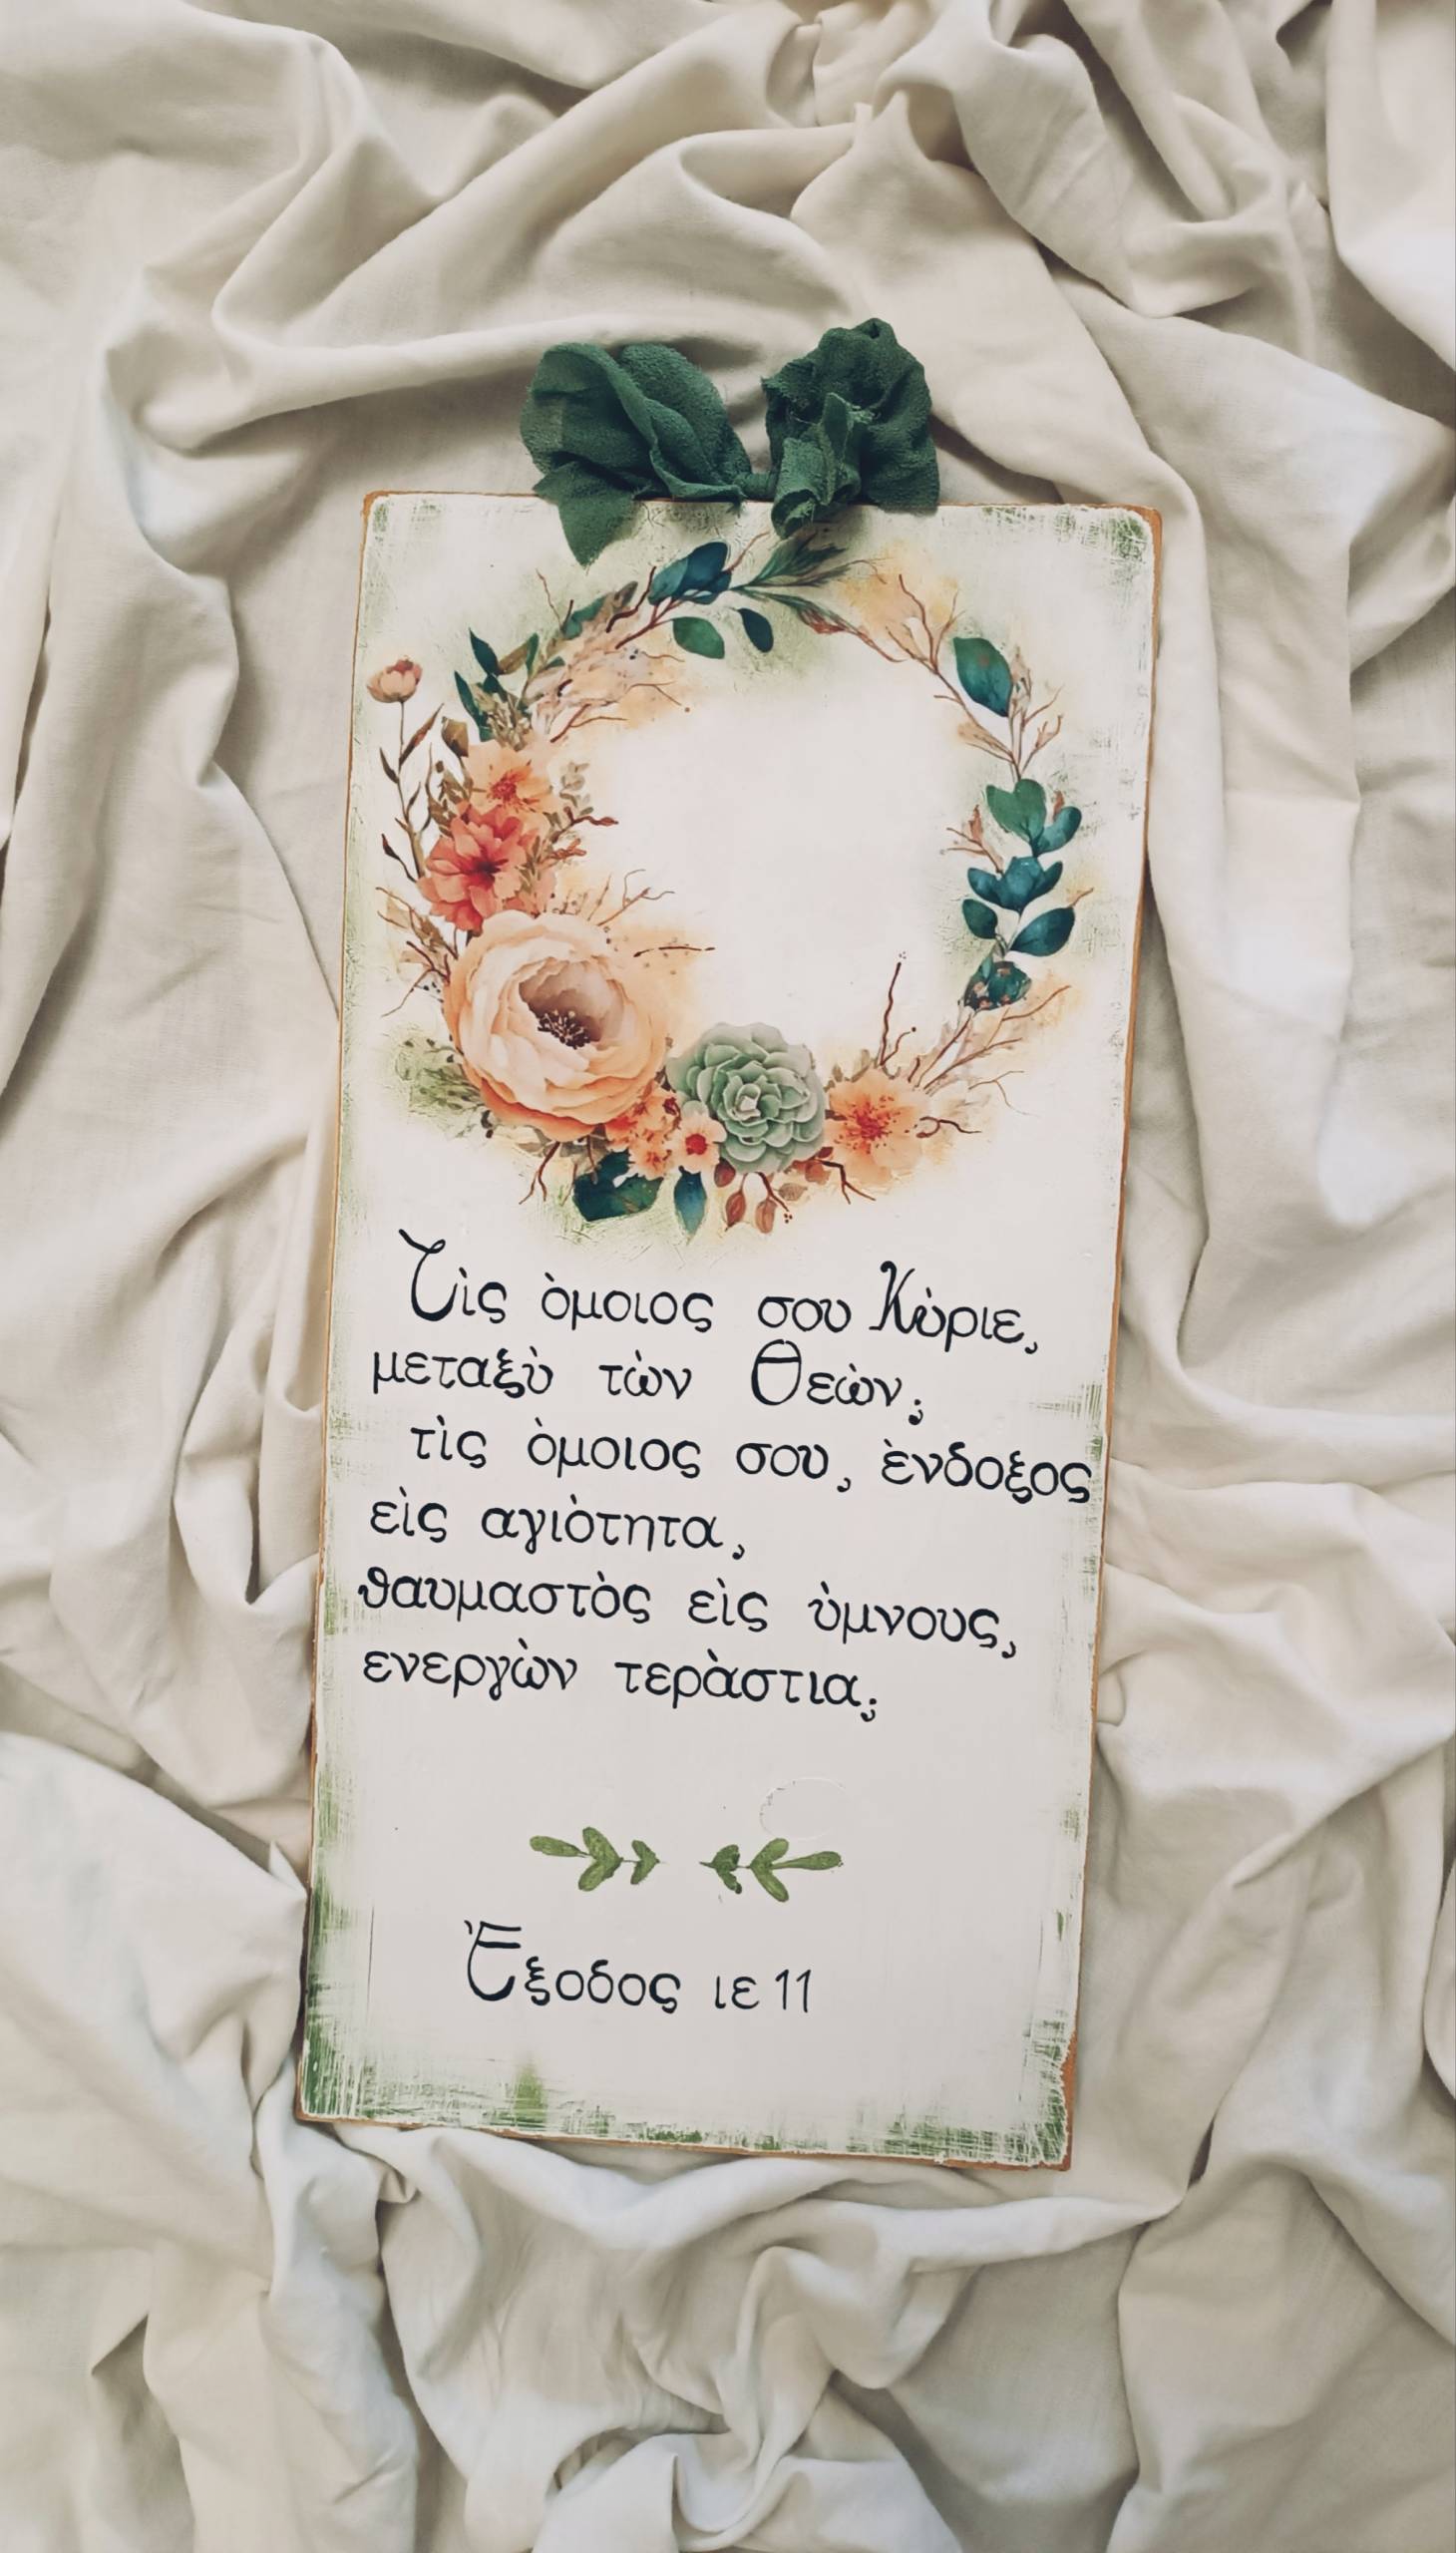 Τὶς ὁμοιος σου Κὺριε,
μεταξὺ τὼν Θεὼν;
τὶς ὁμοιος σου, ὲνδοξος
εὶς αγιὸτητα,
θαυμαστὸς εὶς ὑμνους,
ενεργὼν τερὰστια;
Ἐξοδος ιε 11